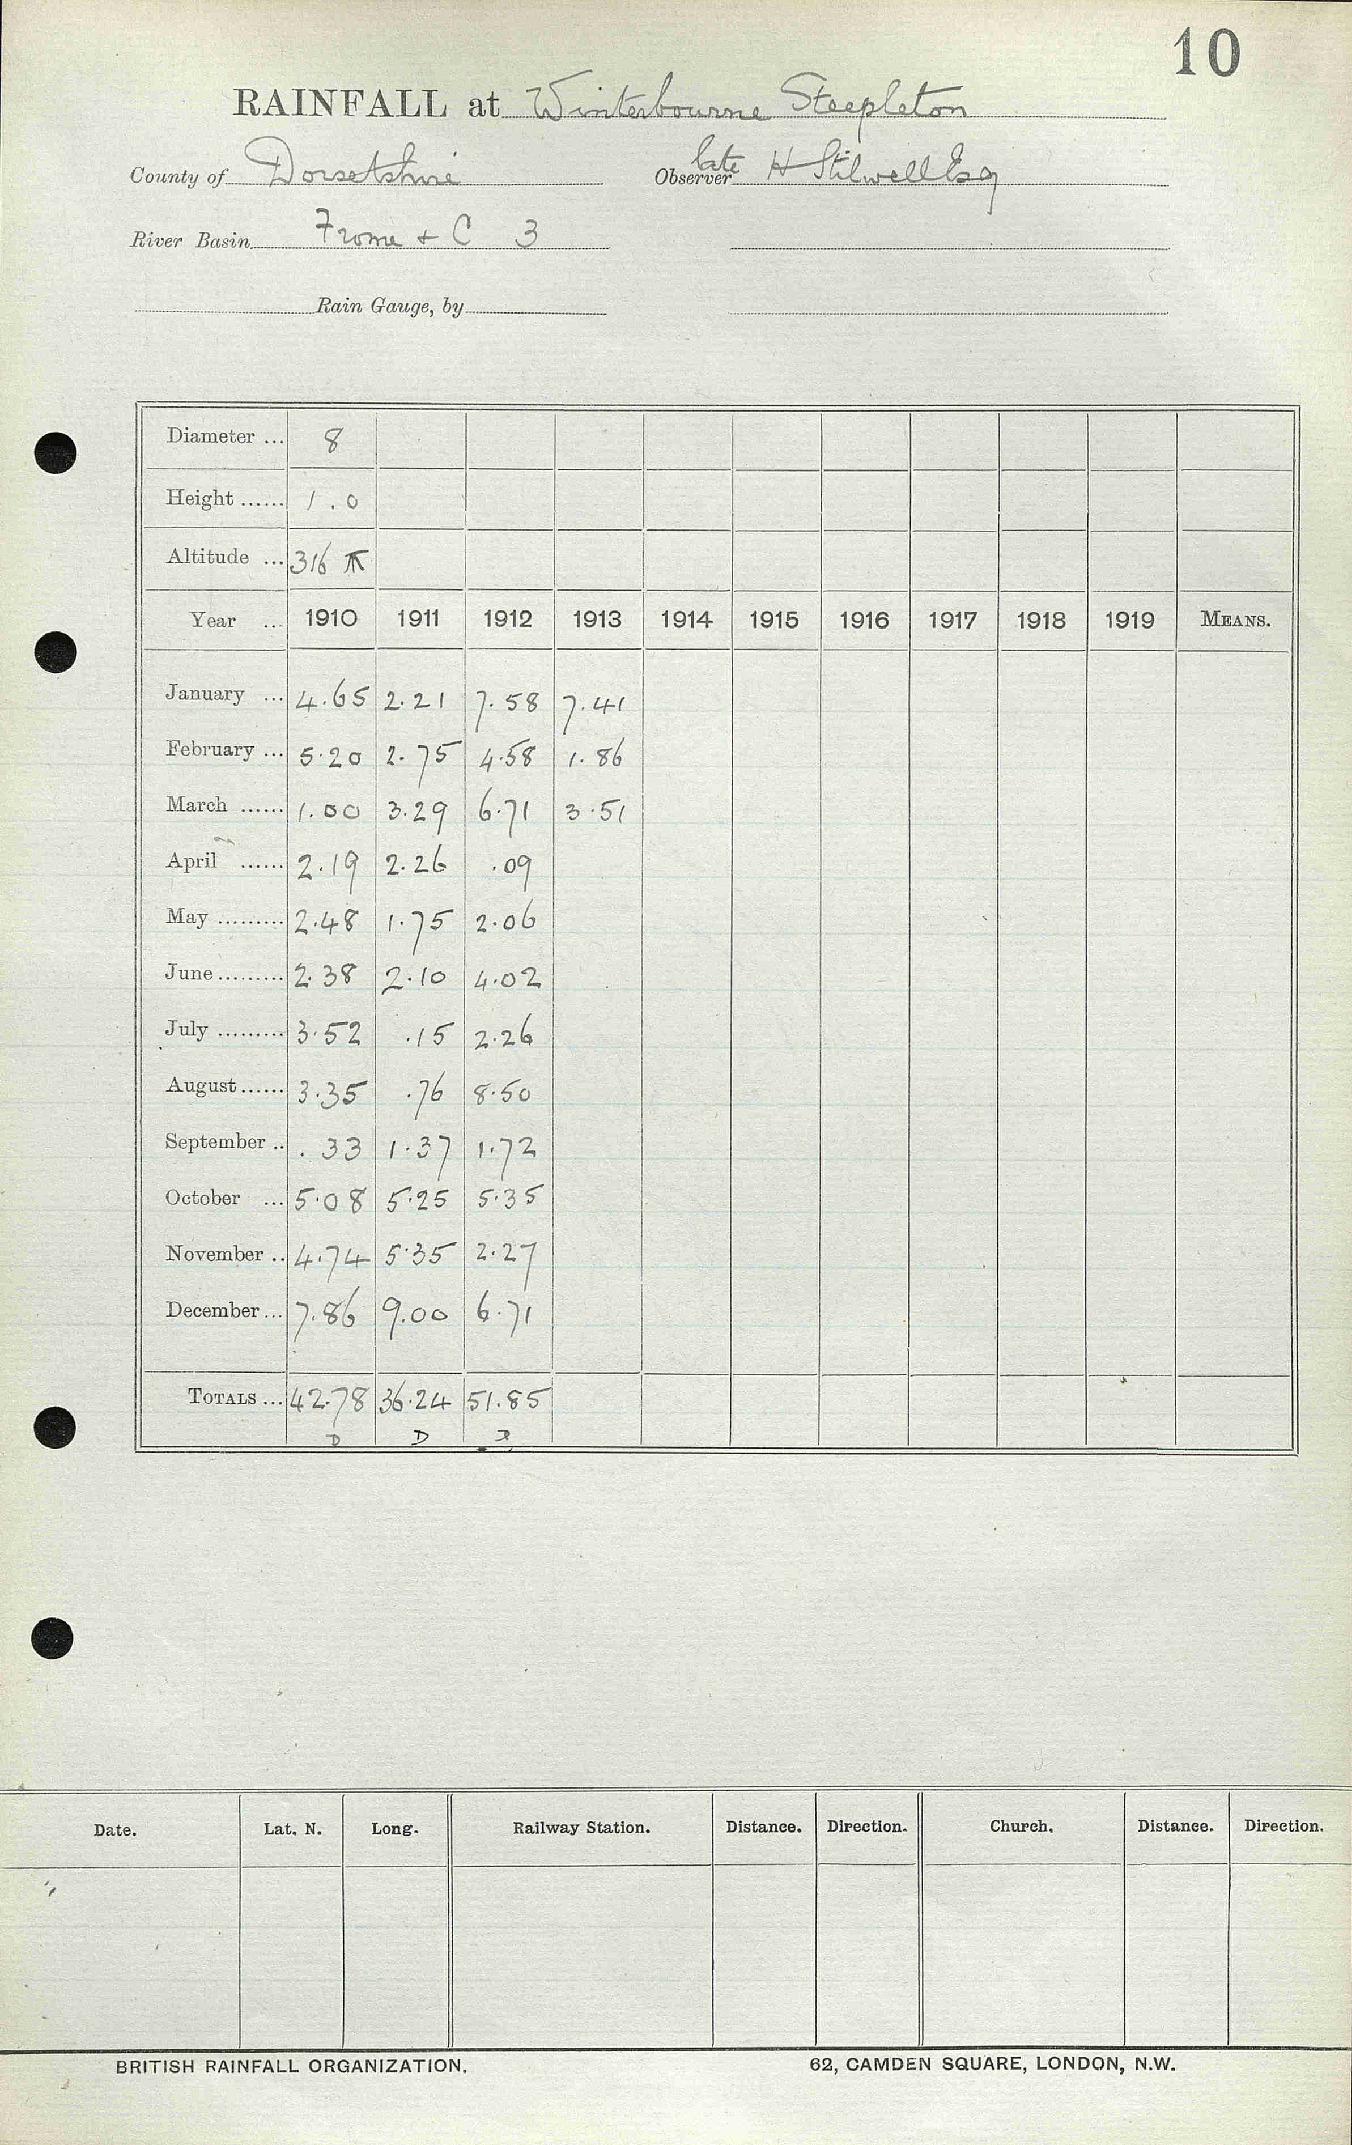 10
RAINFALL at Winterbourne Steepleton
County of Dorsetshire Observer late H Stilwell Esq
River Basin Frome & C 3
Rain Gauge, by
Diameter ... 8
Height ...... 1.0
Altitude ... 316
Year ... 1910 1911 1912 1913 1914 1915 1916 1917 1918 1919 MEANS.
January ... 4.65 2.21 7.58 7.41
February ... 5.20 2.75 4.58 1.86
March ...... 1.00 3.29 6.71 3.51
April ...... 2.19 2.26 .09
May ......... 2.48 1.75 2.06
June ......... 2.38 2.10 4.02
July ......... 3.52 .15 2.26
August ...... 3.35 .76 8.50
September .. .33 1.37 1.72
October ... 5.08 5.25 5.35
November .. 4.74 5.35 2.27
December ... 7.86 9.00 6.71
TOTALS ... 42.78 36.24 51.85
D D D
Date. Lat. N. Long. Railway Station. Distance. Direction. Church. Distance. Direction.
BRITISH RAINFALL ORGANIZATION. 62, CAMDEN SQUARE, LONDON, N.W.